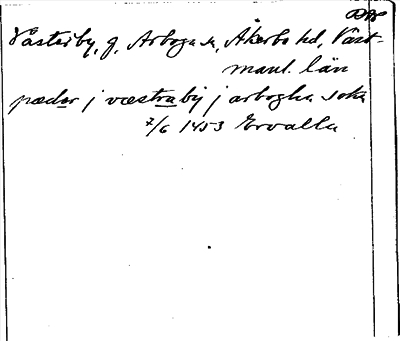 Västerby, g, Arboga sn, Åkerbo hd, Väst-
manl. län
pædar j væstraby j arbogha sokn
7/6 1453 Ervalla